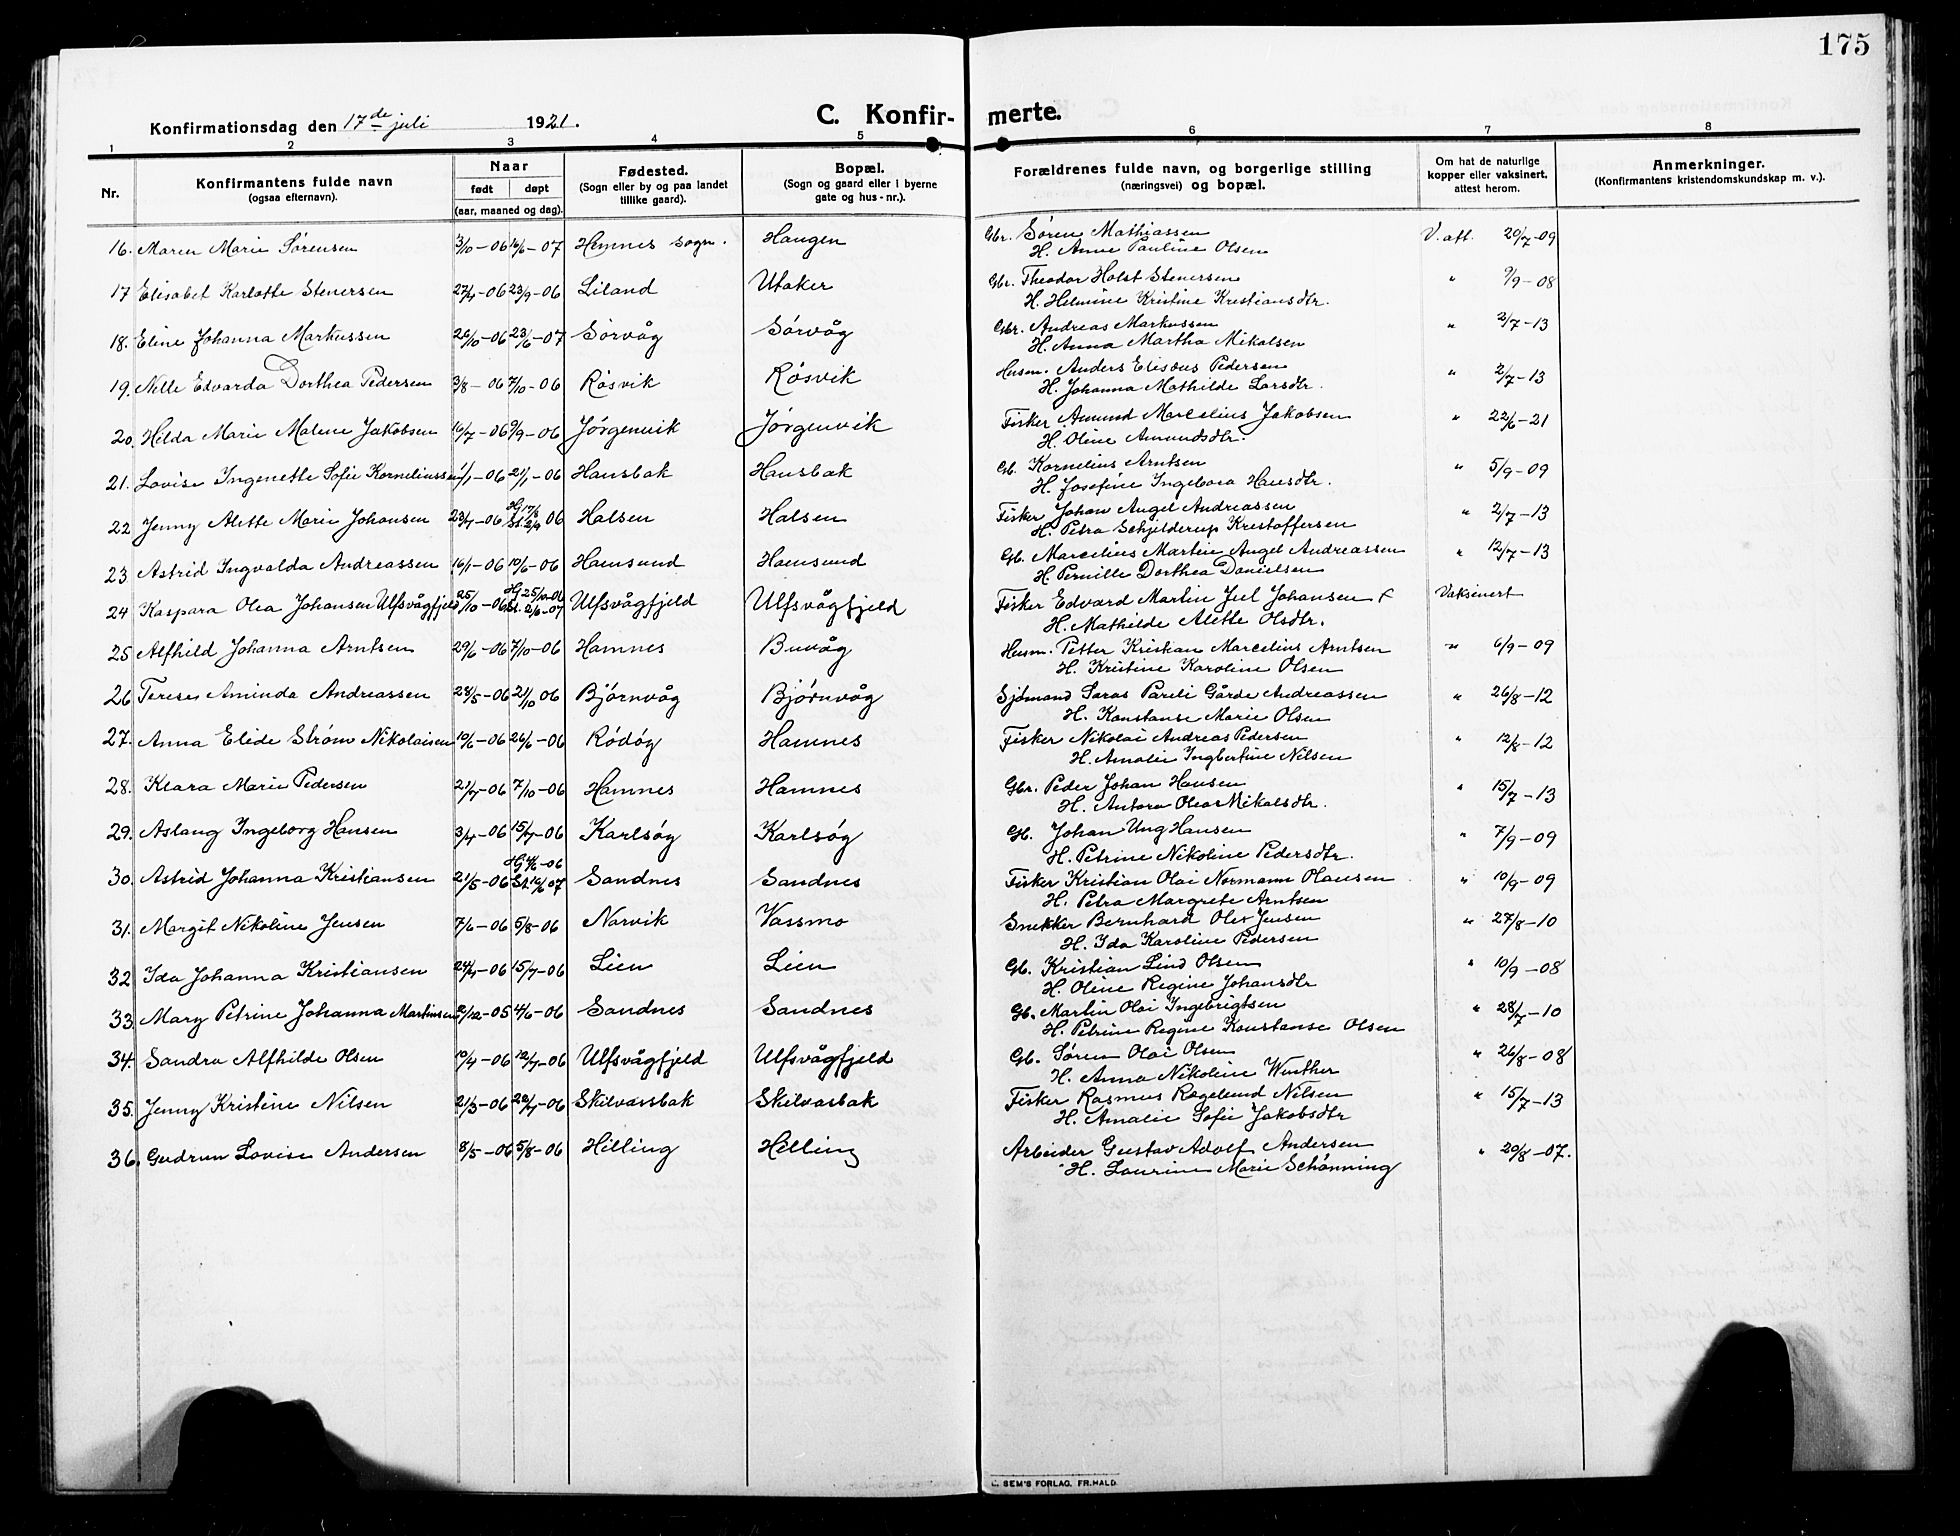 175
Konfirmationsdag den 17de juli 1921.
C. Konfir- merte.
1 2 3 4 5 6 7 8
Nr.
Konfirmantens fulde navn
(ogsaa efternavn).
Naar
født døpt
(aar, maaned og dag).
Fødested.
(Sogn eller by og paa landet
tillike gaard).
Bopæl.
(Sogn og gaard eller i byerne
gate og hus-nr.).
Forældrenes fulde navn, og borgerlige stilling
(næringsvei) og bopæl.
Om hat de naturlige
kopper eller vaksinert.
attest herom.
Anmerkninger.
(Konfirmantens kristendomskundskap m. v.).
16. Maren Marie Sørensen 3/10-06 16/6-07 Hemnes sogn. Haugen Gbr. Søren Mathiassen V. att. 20/7-09
H. Anne Pauline Olsen
17 Elisabet Karlotte Stenersen 27/4-06 23/9-06 Liland Utaker Gbr. Theodor Holst Stenersen " 9/9-08
H. Helmine Kristine Kristiansdtr.
18. Eline Johanna Markussen 26/10-06 23/6-07 Sørvåg Sørvåg Gbr. Andreas Markussen " 2/7-13
H. Anna Martha Mikalsen
19. Nelle Edvarda Dorthea Pedersen 3/8-06 7/10-06 Røsvik Røsvik Husm. Anders Elisæus Pedersen " 2/7-13
H. Johanna Mathilde Larsdtr.
20. Hilda Marie Malene Jakobsen 16/7-06 9/9-06 Jørgenvik Jørgenvik Fisker Amund Marcelius Jakobsen " 22/6-21
H. Oline Amundsdtr.
21. Lovise Ingenette Sofie Korneliussen 1/1-06 21/1-06 Hansbak Hansbak Gb. Kornelius Arntsen " 5/9-09
H. Josefine Ingeborg Hansdtr.
22 Jenny Alette Marie Johansen 23/7-06 Hj. 17/8 St. 2/9 06 Halsen Halsen Fisker Johan Angel Andreassen " 2/7-13
H. Petra Schjelderup Kristoffersen
23 Astrid Ingvalda Andreassen 16/1-06 10/6-06 Hamsund Hamsund Gb. Marcelius Martin Angel Andreassen " 12/7-13
H. Pernille Dorthea Danielsen
24 Kaspara Olea Johansen Ulfsvågfjeld 25/10-06 Hj. 25/10-06 St. 2/6-07 Ulfsvågfjeld Ulfsvågfjeld Fisker Edvard Martin Juel Johansen Vaksinert
H. Mathilde Alette Olsdtr.
25 Alfhild Johanna Arntsen 29/6-06 7/10-06 Hamnes Buvåg Husm. Petter Kristian Marcelius Arntsen " 6/9-09
H. Kristine Karoline Olsen
26 Terese Aminda Andreassen 28/5-06 21/10 06 Bjørnvåg Bjørnvåg Sjømand Saras Pareli Gårde Andreassen " 26/8-12
H. Konstanse Marie Olsen
27. Anna Elide Strøm Nikolaisen 10/6-06 26/6-06 Rødøy Hamnes Fisker Nikolai Andreas Pedersen " 12/8-12
H. Amalie Ingbertine Nilsen
28. Klara Marie Pedersen 21/7-06 7/10-06 Hamnes Hamnes Gbr. Peder Johan Hansen " 15/7-13
H. Antora Olea Mikalsdtr.
29. Aslaug Ingeborg Hansen 3/4-06 15/7-06 Karlsøy Karlsøy Gb. Johan Ung Hansen " 7/9-09
H. Petrine Nikoline Pedersdtr.
30. Astrid Johanna Kristiansen 21/5-06 Hj. 4/6-06 St. 16/6 07 Sandnes Sandnes Fisker Kristian Olai Normann Olausen " 10/9-09
H. Petra Margrete Arntsen
31. Margit Nikoline Jensen 7/6-06 5/8-06 Narvik Vassmo Snekker Bernhard Olev Jensen " 27/8-10
H. Ida Karoline Pedersen
32 Ida Johanna Kristiansen 24/4-06 15/7-06 Lien Lien Gb. Kristian Lind Olsen " 10/9-08
H. Oline Regine Johansdtr
33. Mary Petrine Johanna Martinsen 2/12-05 4/6-06 Sandnes Sandnes Gb. Martin Olai Ingebrigtsen " 28/7-10
H. Petrine Regine Konstanse Olsen
34. Sandra Alfhilde Olsen 10/4-06 12/7-06 Ulfsvågfjeld Ulfsvågfjeld Gb. Søren Olai Olsen " 26/8-08
H. Anna Nikoline Winther
35. Jenny Kristine Nilsen 21/3-06 20/7-06 Skilvassbak Skilvasbak Fisker Rasmus Rogelund Nilsen " 15/7-13
H. Amalie Sofie Jakobsdtr
36. Gudrun Lovise Andersen 8/5-06 5/8-06 Hilling Helling Arbeider Gustav Adolf Andersen " 20/8-07.
H. Laurine Marie Schønning
SEM'S FORLAG, FR.HALD.